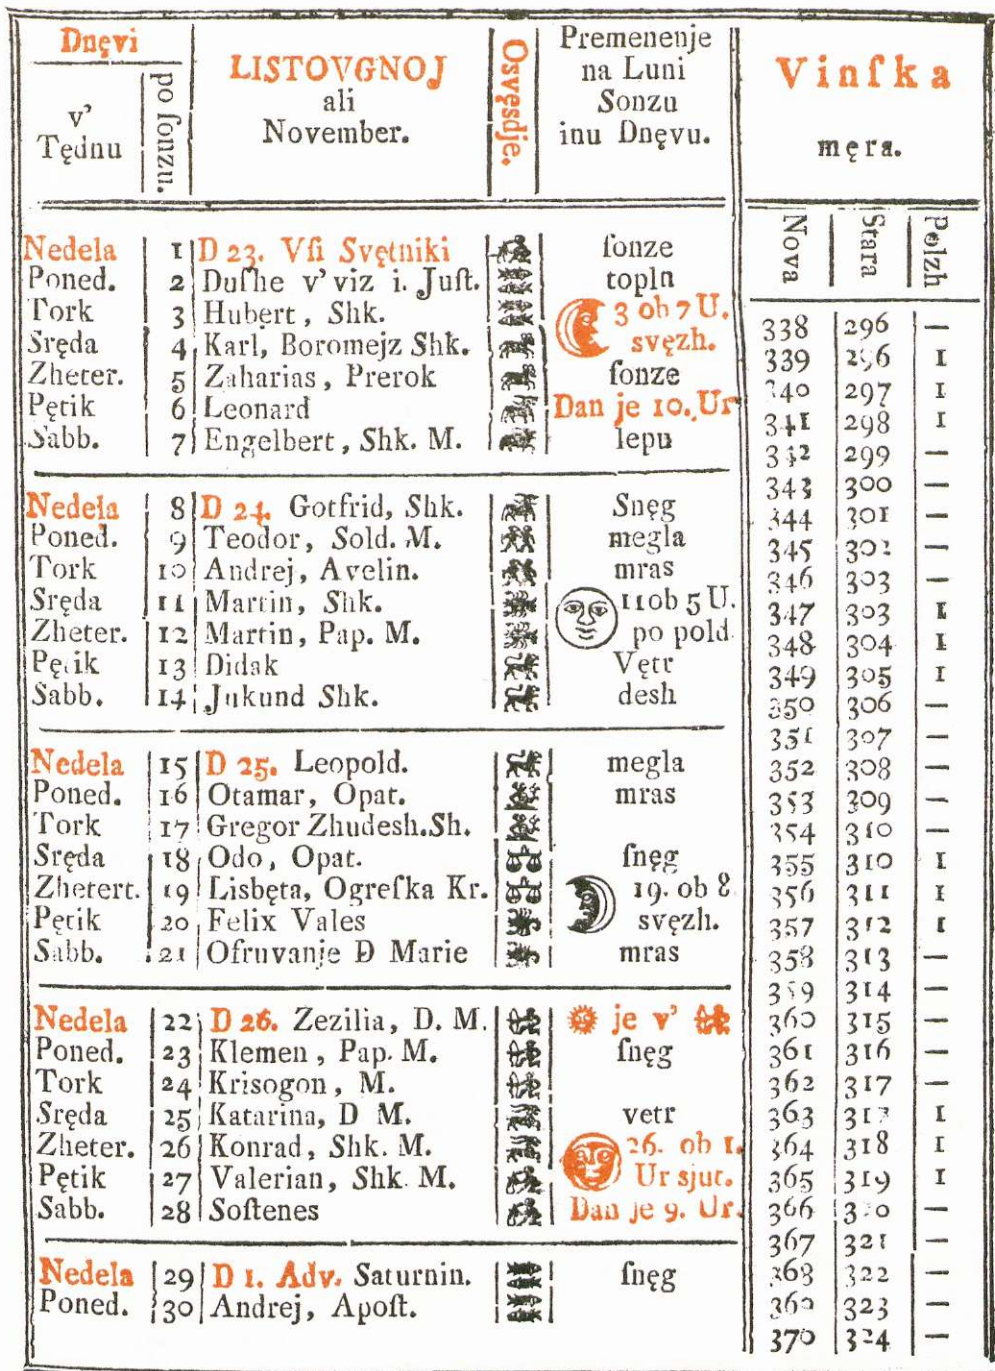 Dnęvi
v' Tędnu
po ſonzu.
LISTOVGNOJ
ali
November.
Osvęsdje.
Premenenje
na Luni
Sonzu
inu Dnęvu.
Nedela 1 D 23. Vſi Svętniki ſonze
Poned. 2 Duſhe v' viz i. Juſt. toplu
Tork 3 Hubert, Shk. 3 ob 7 U.
Sręda 4 Karl, Boromejz Shk. svęzh.
Zheter. 5 Zaharias, Prerok ſonze
Pętik 6 Leonard Dan je 10. Ur
Sabb. 7 Engelbert, Shk. M. lepu
Nedela 8 D 24. Gotfrid, Shk. Snęg
Poned. 9 Teodor, Sold. M. megla
Tork 10 Andrej, Avelin. mras
Sręda 11 Martin, Shk. 11 ob 5 U.
Zheter. 12 Martin, Pap. M. po pold.
Pętik 13 Didak Vętr
Sabb. 14 Jukund Shk. desh
Nedela 15 D 25. Leopold. megla
Poned. 16 Otamar, Opat. mras
Tork 17 Gregor Zhudesh. Sh.
Sręda 18 Odo, Opat. ſnęg
Zhetert. 19 Lisbęta, Ogreſka Kr. 19. ob 8
Pętik 20 Felix Vales svęzh.
Sabb. 21 Ofruvanje D Marie mras
Nedela 22 D 26. Zezilia, D. M. je v'
Poned. 23 Klemen, Pap. M. ſnęg
Tork 24 Krisogon, M.
Sręda 25 Katarina, D M. vetr
Zheter. 26 Konrad, Shk. M. 26. ob 1.
Pętik 27 Valerian, Shk. M. Ur sjut.
Sabb. 28 Soſtenes Dan je 9. Ur.
Nedela 29 D 1. Adv. Saturnin. ſnęg
Poned. 30 Andrej, Apoſt.
Vinſka
męra.
Nova Stara Polzh
338 296 —
339 296 1
340 297 1
341 298 1
342 299 —
343 300 —
344 301 —
345 302 —
346 303 —
347 303 1
348 304 1
349 305 1
350 306 —
351 307 —
352 308 —
353 309 —
354 310 —
355 310 1
356 311 1
357 312 1
358 313 —
359 314 —
360 315 —
361 316 —
362 317 —
363 317 1
364 318 1
365 319 1
366 320 —
367 321 —
368 322 —
369 323 —
370 324 —